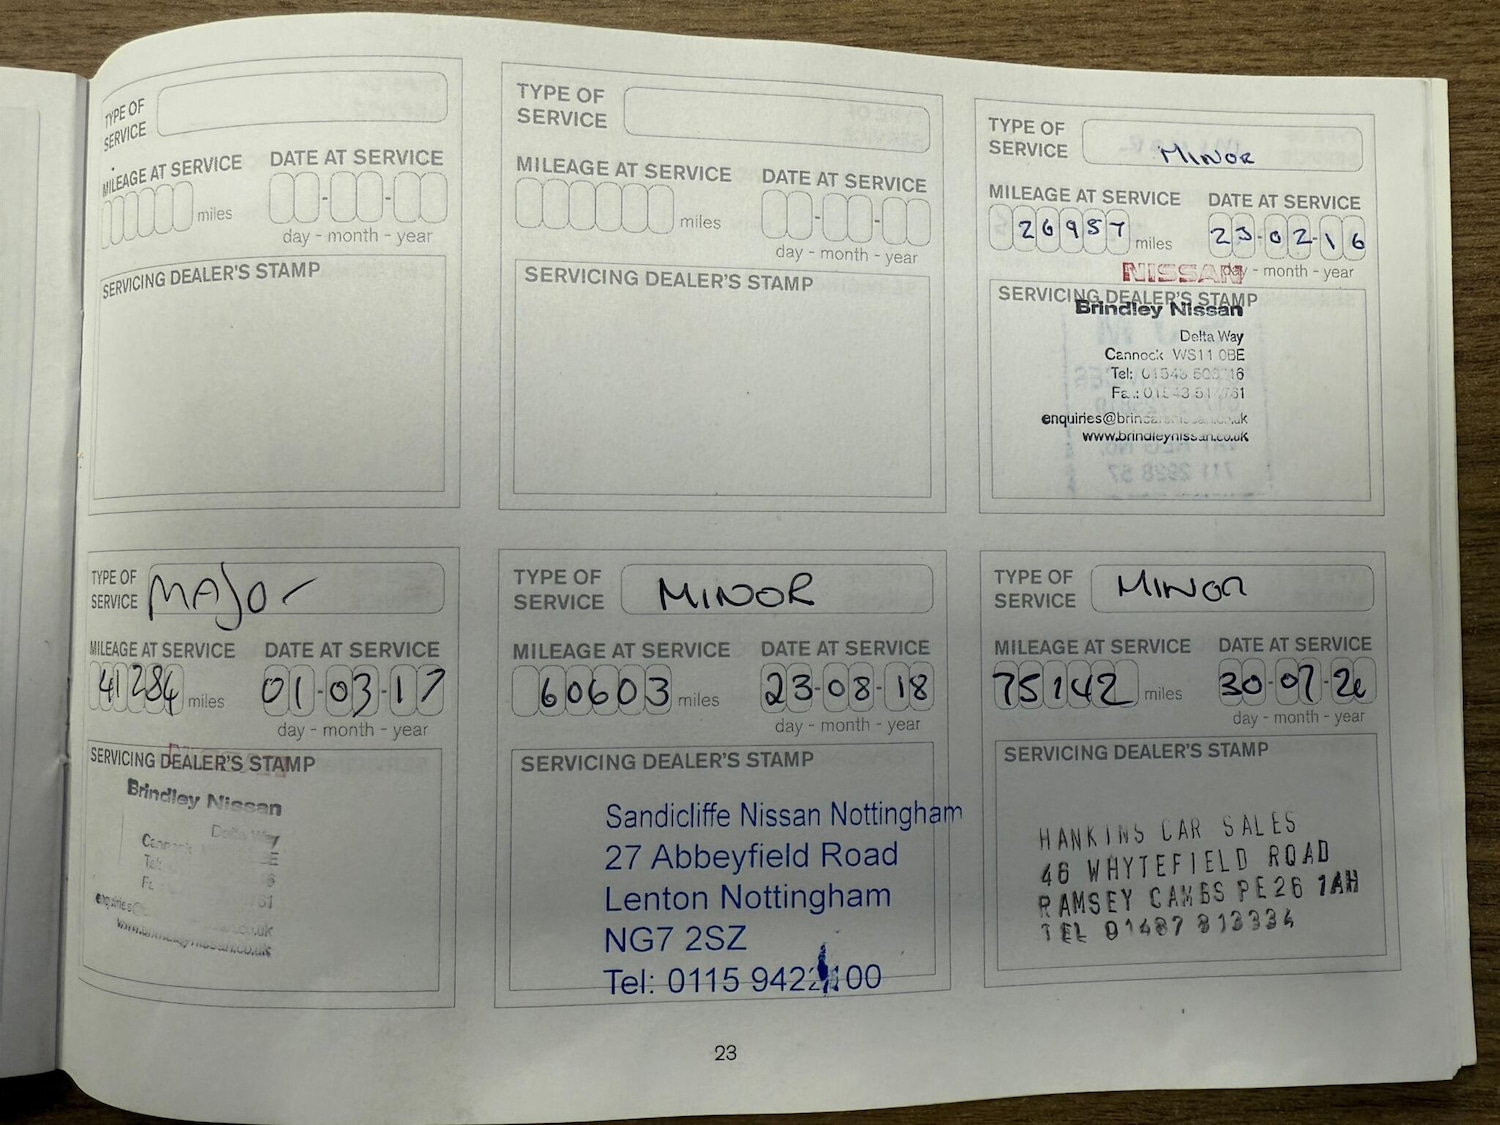 TYPE OF
SERVICE
MILEAGE AT SERVICE DATE AT SERVICE
miles
day - month - year
SERVICING DEALER'S STAMP
TYPE OF
SERVICE
MILEAGE AT SERVICE DATE AT SERVICE
miles
day - month - year
SERVICING DEALER'S STAMP
TYPE OF
SERVICE MINOR
MILEAGE AT SERVICE DATE AT SERVICE
26957 miles 23-02-16
day - month - year
NISSAN
SERVICING DEALER'S STAMP
Brindley Nissan
Delta Way
Cannock WS11 0BE
Tel:
enquiries@
www.brindleynissan.co.uk
TYPE OF
SERVICE MAJOR
MILEAGE AT SERVICE DATE AT SERVICE
41284 miles 01-03-17
day - month - year
SERVICING DEALER'S STAMP
Brindley Nissan
Delta Way
Cannock
Tel:
www.brindleynissan.co.uk
TYPE OF
SERVICE MINOR
MILEAGE AT SERVICE DATE AT SERVICE
60603 miles 23-08-18
day - month - year
SERVICING DEALER'S STAMP
Sandicliffe Nissan Nottingham
27 Abbeyfield Road
Lenton Nottingham
NG7 2SZ
Tel: 0115
TYPE OF
SERVICE MINOR
MILEAGE AT SERVICE DATE AT SERVICE
75142 miles 30-07-20
day - month - year
SERVICING DEALER'S STAMP
HANKINS CAR SALES
46 WHYTEFIELD ROAD
RAMSEY CAMBS PE26 1AH
TEL 01487 813334
23